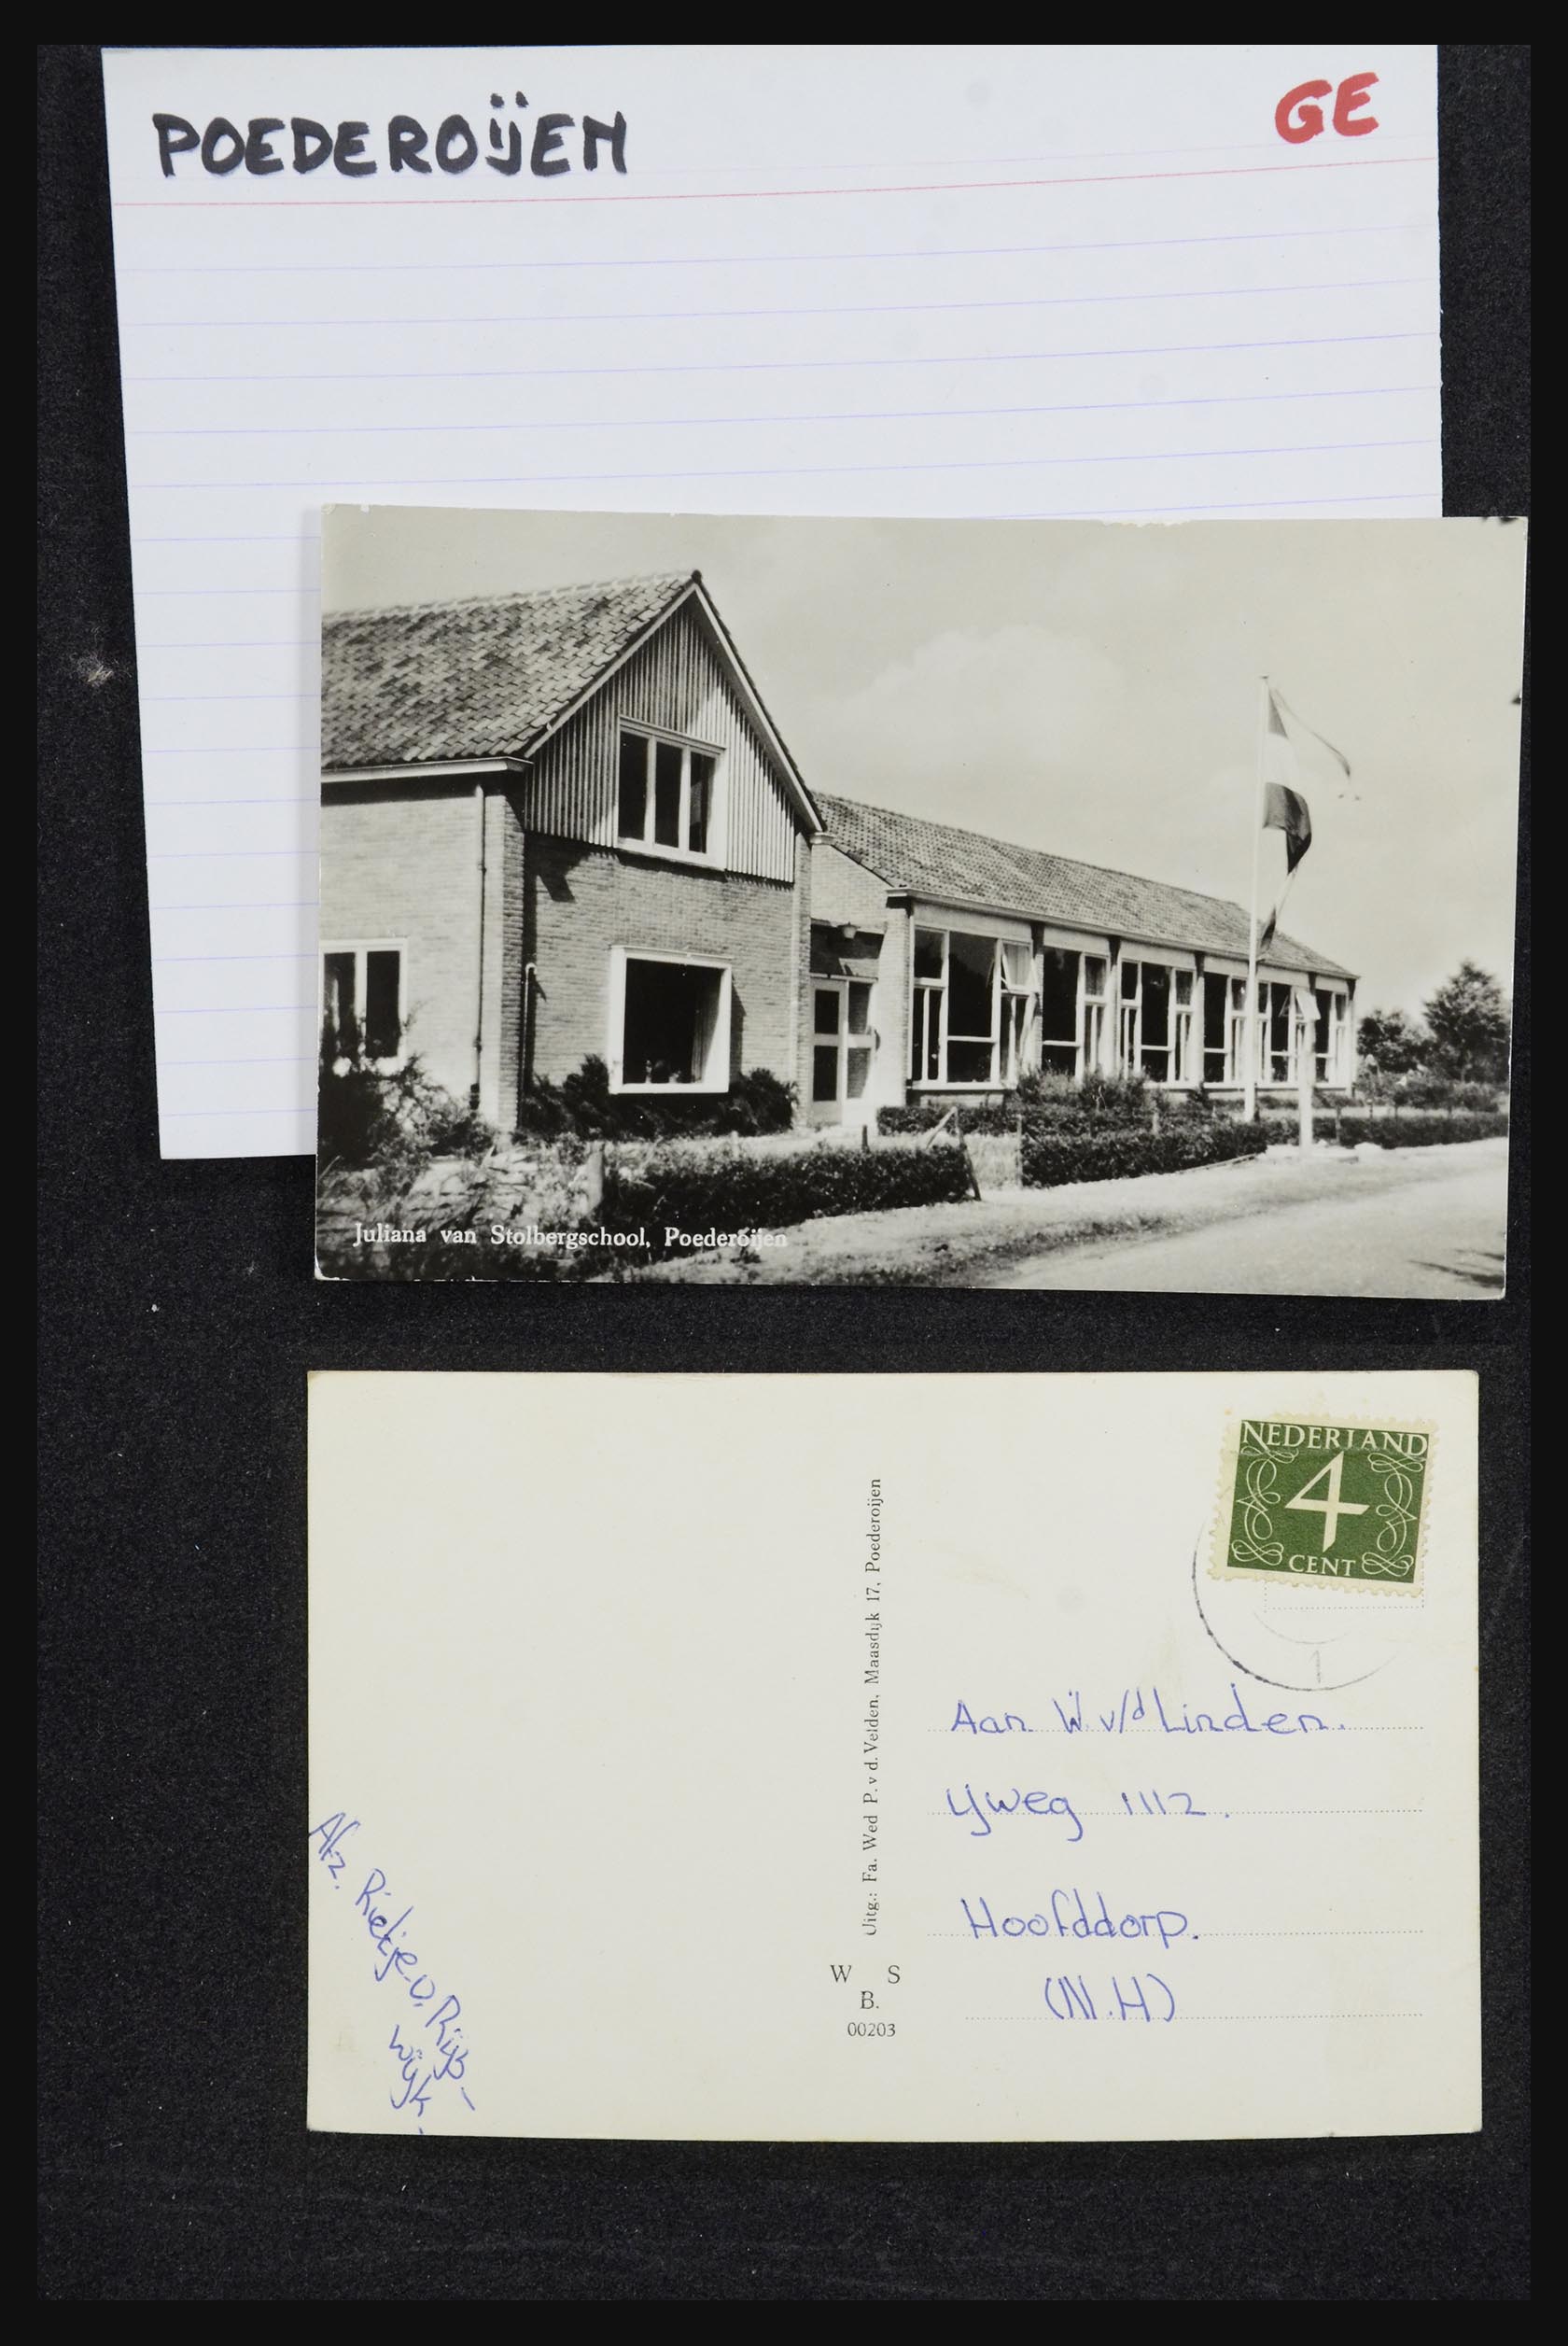 POEDEROIJEN
GE
Juliana van Stolbergschool, Poederoijen
NEDERLAND
4
CENT
1
Uitg.: Fa. Wed P. v d. Velden, Maasdijk 17, Poederoijen
W S
B.
00203
Aan W. v/d Linden.
IJweg 1112.
Hoofddorp.
(N.H)
Afz. Rietje v. Rijs-
wijk-